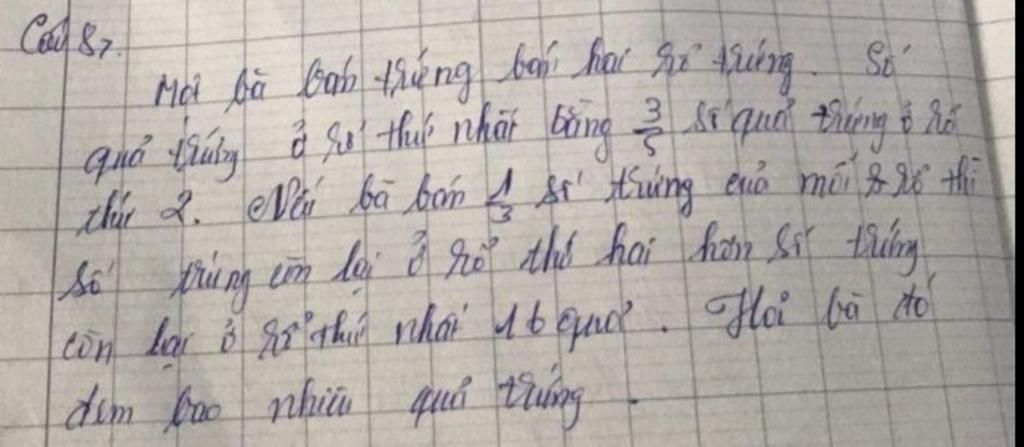 Câu 87.
Một bà bán trứng bán hai rổ trứng. Số
quả trứng ở rổ thứ nhất bằng 3/5 số quả trứng ở rổ
thứ 2. Nếu bà bán 1/3 số trứng của mỗi rổ thì
số trứng còn lại ở rổ thứ hai hơn số trứng
còn lại ở rổ thứ nhất 16 quả. Hỏi bà đó
đem bao nhiêu quả trứng.